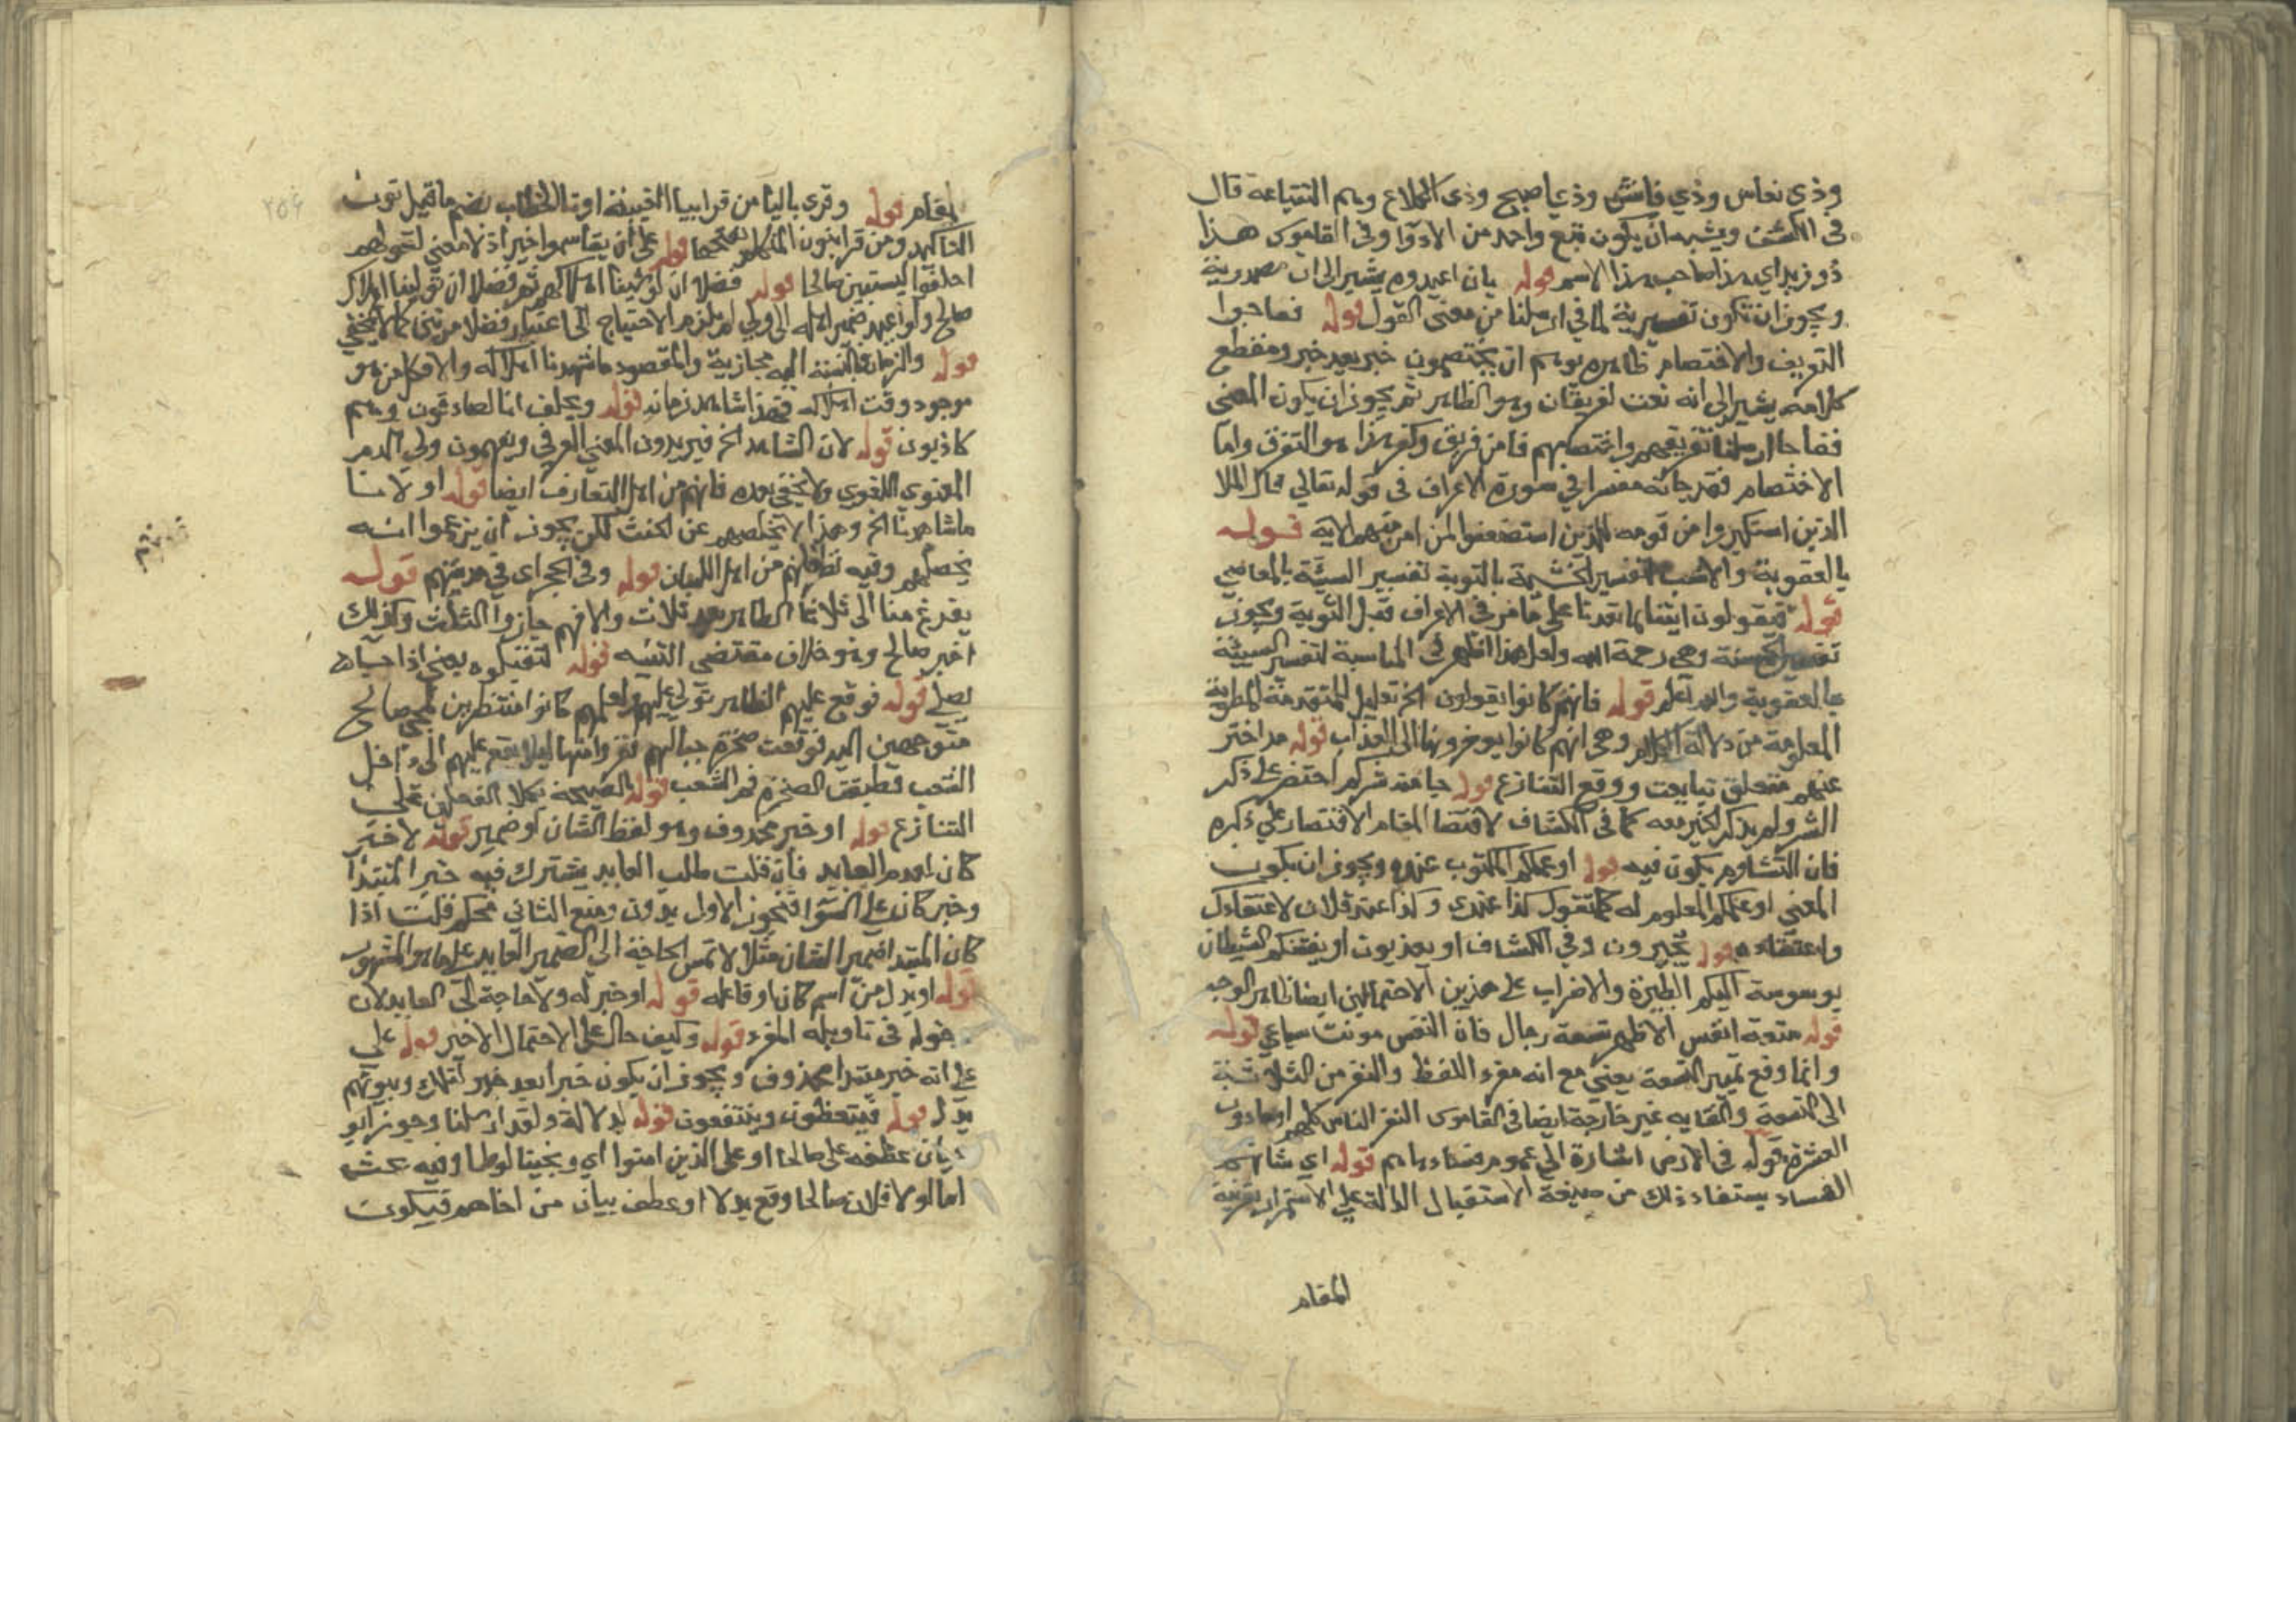 وذي نواس وذي فايش وذي اصبح وذي الكلاع وهم التتابعة قال
في الكشف ويشبه ان يكون تبع واحد من الاذوا وفي القاموس هذا
ذو زيد اي هذا صاحب هذا الاسم قوله بان اعبدوه يشير الى ان مصدرية
ويجوز ان تكون تفسيرية لما في ارسلنا من معنى القول قوله ففاجوا
التفريق والاختصام ظاهره يوهم ان يختصمون خبر بعد خبر ومقطع
كلامه يشير الى انه نعت لفريقان وهو الظاهر ثم يجوز ان يكون المعنى
ففاجا ارسلنا تفريقهم واختصامهم فامن فريق وكفر هذا هو التفرق واما
الاختصام فقد جا انه مفسرا في سورة الاعراف في قوله تعالى قال الملا
الذين استكبروا من قومه للذين استضعفوا لمن امن منهم الاية قوله
بالعقوبة والانسب لتفسير الحسنة بالتوبة تفسير السيئة بالمعاصي
قوله فيقولون ايتنا بما تعدنا على ما مر في الاعراف قبل التوبة ويجوز
تفسير الحسنة وهي رحمة الله ولعل هذا اظهر في المناسبة لتفسير السيئة
بالعقوبة والله اعلم قوله فانهم كانوا يقولون الخ تعليل للمتقدمة المطوية
المعلومة من دلالة الكلام وهي انهم كانوا يوخرونها الى العذاب قوله مذ اخترتم
عنهم متعلق تبايعت ووقع التنازع قوله جا منه شركم اختصر على ذكر
الشر ولم يذكر الخير معه كما في الكشاف لاقتضا المقام الاقتصار على ذكره
فان التشاوم يكون فيه قوله او عملكم المكتوب عنده ويجوز ان يكون
المعنى او عملكم المعلوم له كما تقول كذا عندي وكذا عند فلان لاعتقادك
واعتقاده قوله تختبرون وفي الكشاف او يعذبون او يفتنكم الشيطان
بوسوسة اليكم الطيرة والاضراب على هذين الاحتمالين ايضا ظاهر الوجه
قوله متعة انفس الاظهر تسعة رجال فان النفس مونث سماعي قوله
وانما وقع تمييز التسعة يعني مع انه مفرد اللفظ والنفر من الثلاثة
الى التسعة والغاية غير خارجة ايضا في القاموس النفر الناس كلهم او ما دون
العشرة قوله في الارض اشارة الى عموم فسادهم قوله اي شانهم
الفساد يستفاد ذلك من صيغة الاستقبال الدالة على الاستمرار بقرينة
المقام
المقام قوله وقرئ باليا من قرا بيا الغيبة او تا الخطاب بضم ما قبل نون
التاكيد ومن قرا بنون المتكلم بفتحها قوله على ان تقاسموا خبر اذ لا معنى لقولهم
احلفوا ليستبين صالحا قوله فضلا ان تولينا اهلاكهم ثم فضلا ان تولينا اهلاك
صالح ولو اعيد ضمير اهله الى ولي لم يلزم الاحتياج الى اعتبار فضلا مرتين كما لا يخفى
قوله والزمان فالنسبة اليه مجازية والمقصود ما شهدنا اهلاكه والا فكل من هو
موجود وقت اهلاكه فهو شاهد زمانه قوله ويحلف انا لصادقون وهم
كاذبون قوله لان الشاهد الخ فيريدون المعنى العرفي ويوهمون ولي الدم
المعنوي اللغوي ولا يخفى بعده فانهم من اهل التعارف ايضا قوله او لانا
ما شاهدنا الخ وهذا لا يخلصهم عن الحنث لكن يجوز ان يزعموا انه
يخلصهم وفيه نظر فانهم من اهل اللسان قوله وفي الحجر اي في مدينتهم قوله
يفرغ منا الى ثلاث الظاهر بعد ثلاث والا فهم جازوا الثلث وكذلك
اخبر صالح وهو خلاف مقتضى التنبه قوله لتقتلوه يعني اذا جا
يصلي قوله فوقع عليهم الظاهر تولي عليهم ولعلهم كانوا منتظرين لمجي صالح
متوجهين اليه فوقعت صخرة حيالهم ففروا منها ليلا يقع عليهم الى داخل
الشعب فطبقت الصخرة فم الشعب قوله بالصيحة بكلا الفعلين على
التنازع قوله او خبر محذوف وهو لفظ الشان او ضمير قوله لا خبر
كان لعدم العايد فان قلت طلب العايد يشترك فيه خبر المبتدا
وخبر كان على السوا فتجويز الاول بدون ومنع الثاني تحكم قلت اذا
كان المبتدا ضمير الشان مثلا لا تمس الحاجة الى الضمير العايد على ما هو المشهور
قوله او بدل من اسم كان او فاعله قوله او خبر له ولا حاجة الى العايد لان
حوله في تاويله المفرد قوله وكيف حال على الاحتمال الاخير قوله على
على انه خبر مبتدا محذوف ويجوز ان يكون خبرا بعد خبر لتلك وبيوتهم
بدل قوله فيتعظون وينتفعون قوله لدلالة ولقد ارسلنا وجوز ابو
بان عطفه على صالحا او على الذين امنوا اي ونجينا لوطا وفيه بحث
اما الاول فلان صالحا وقع بدلا او عطف بيان من اخاهم فيكون